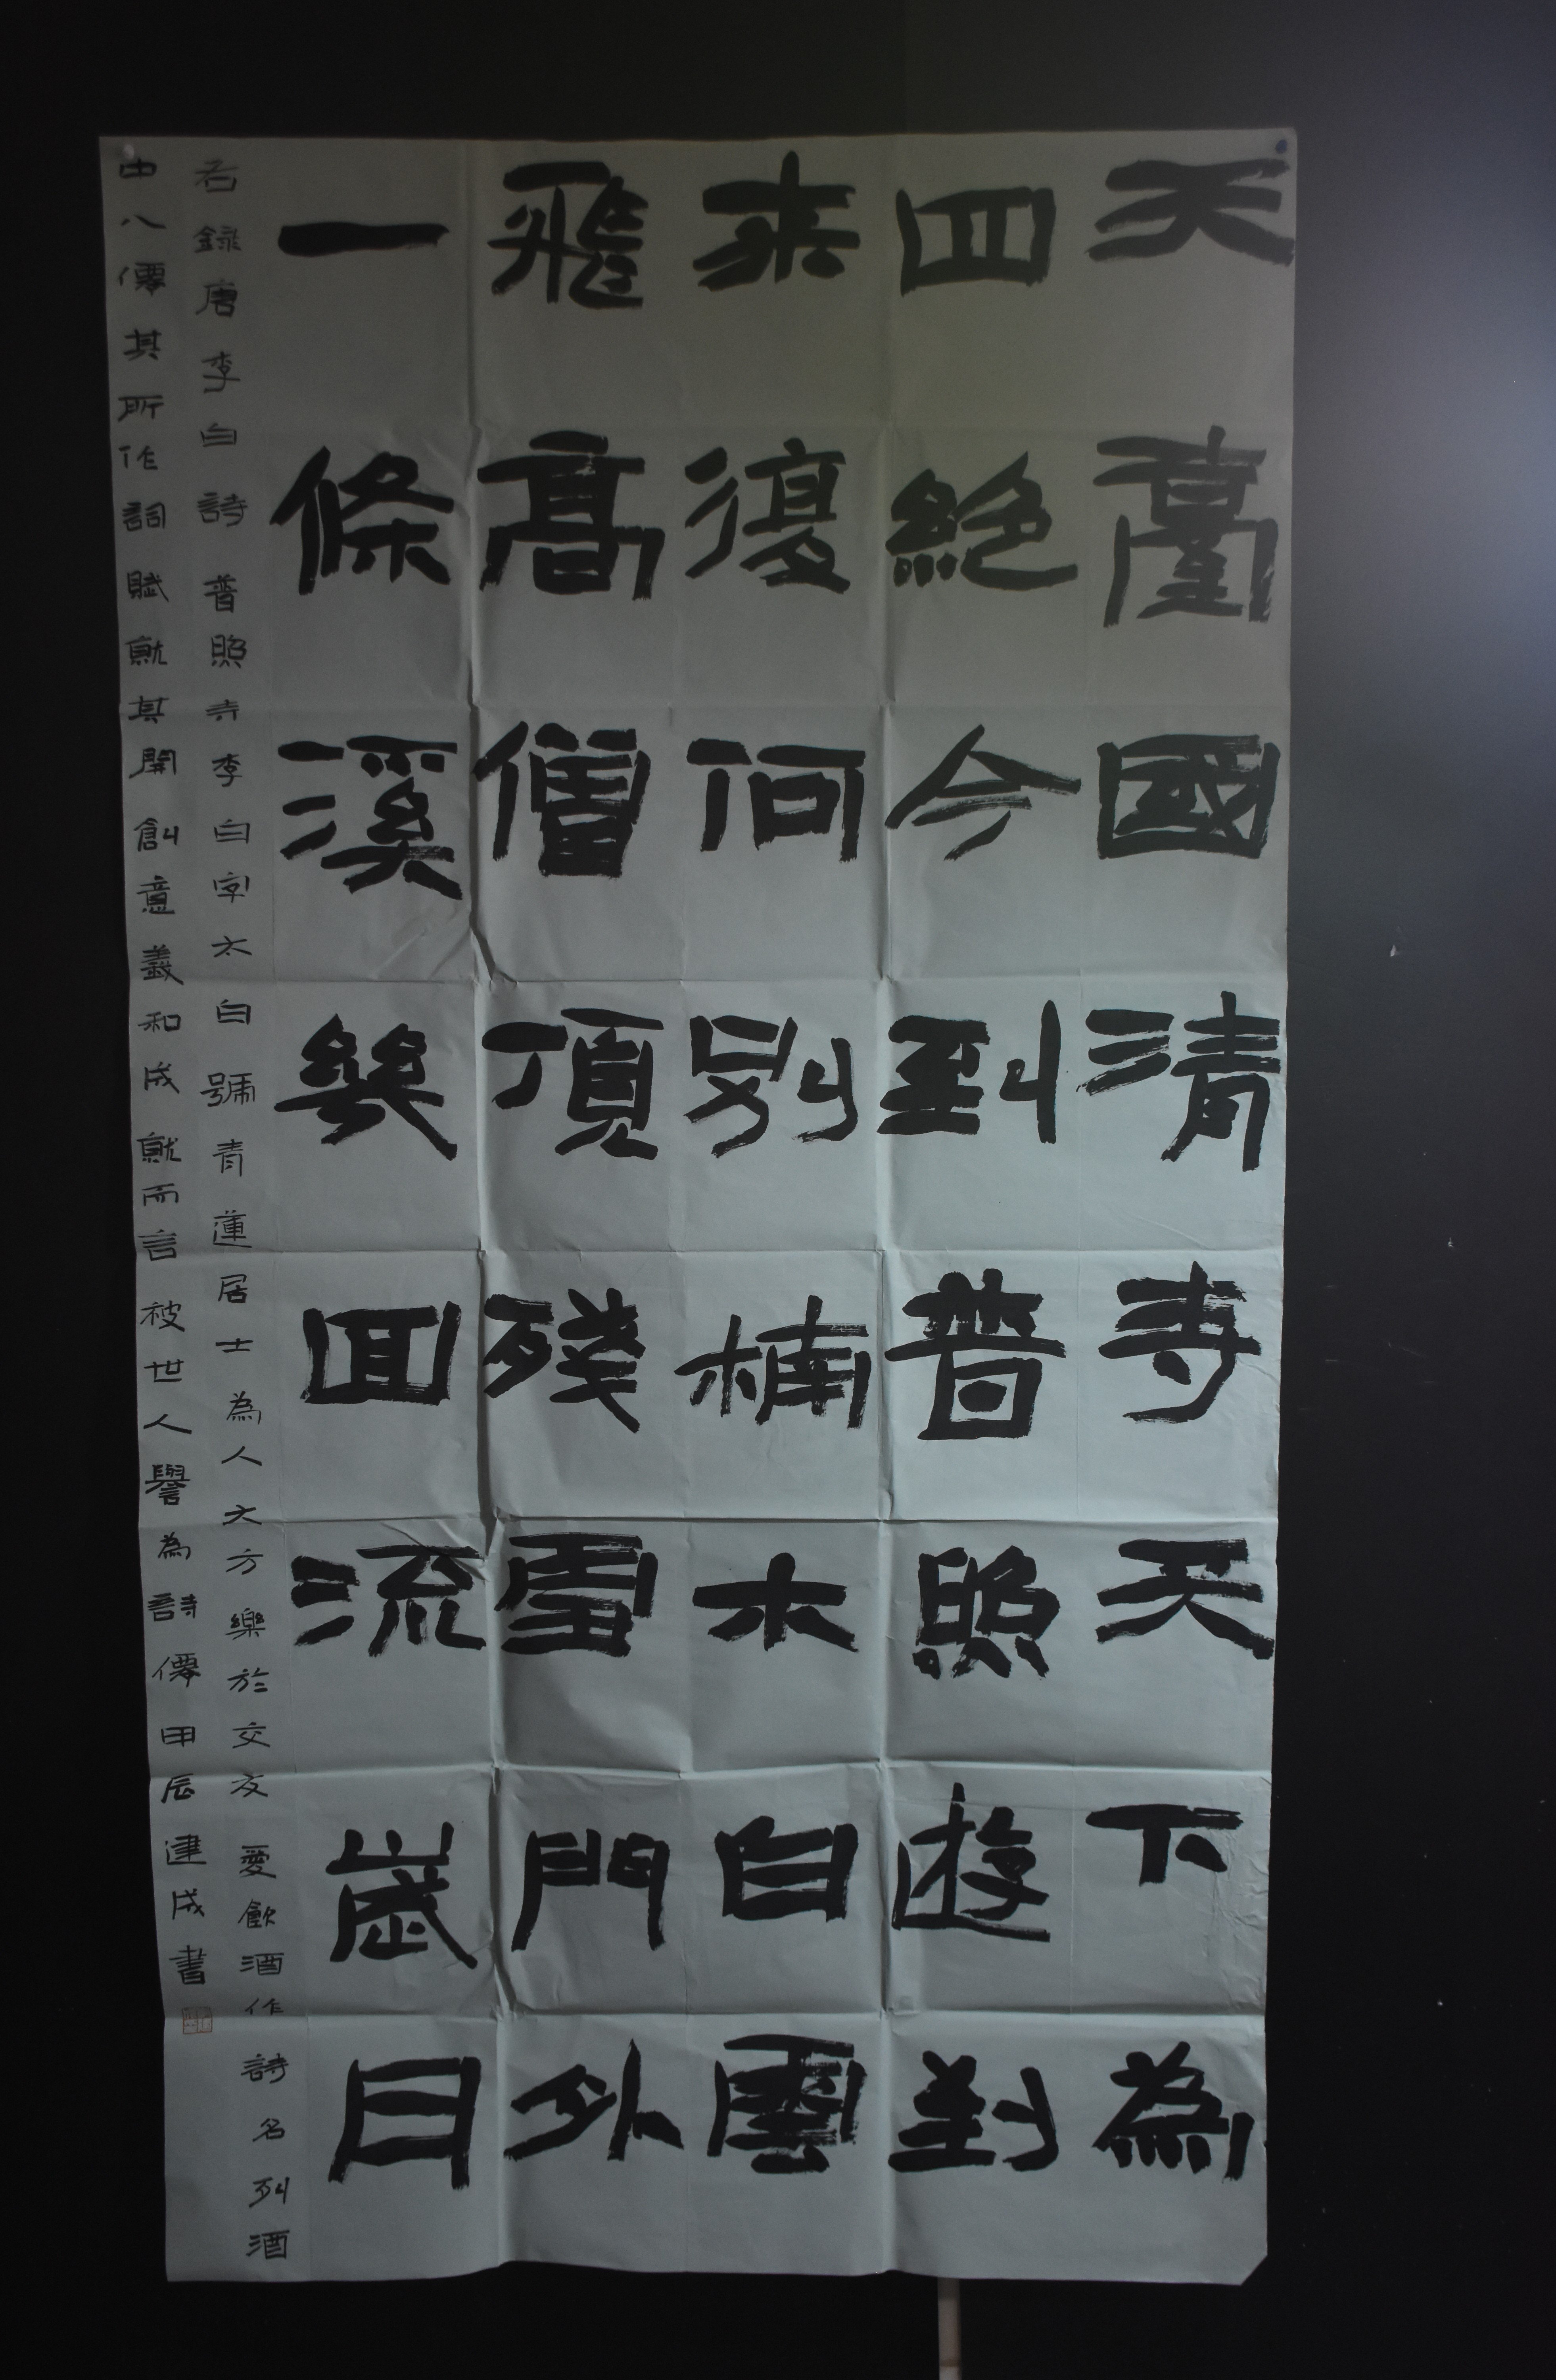 天臺國清寺天下為
四絕今到普照遊到
来復何別楠木白雲
飛高僧頂殘雪門外
一條溪幾回流歲月
右錄唐李白詩普照寺李白字太白號青蓮居士為人大方樂於交友愛飲酒作詩名列酒
中八僊其所作詞賦就其開創意義和成就而言被世人譽為詩僊甲辰建成書